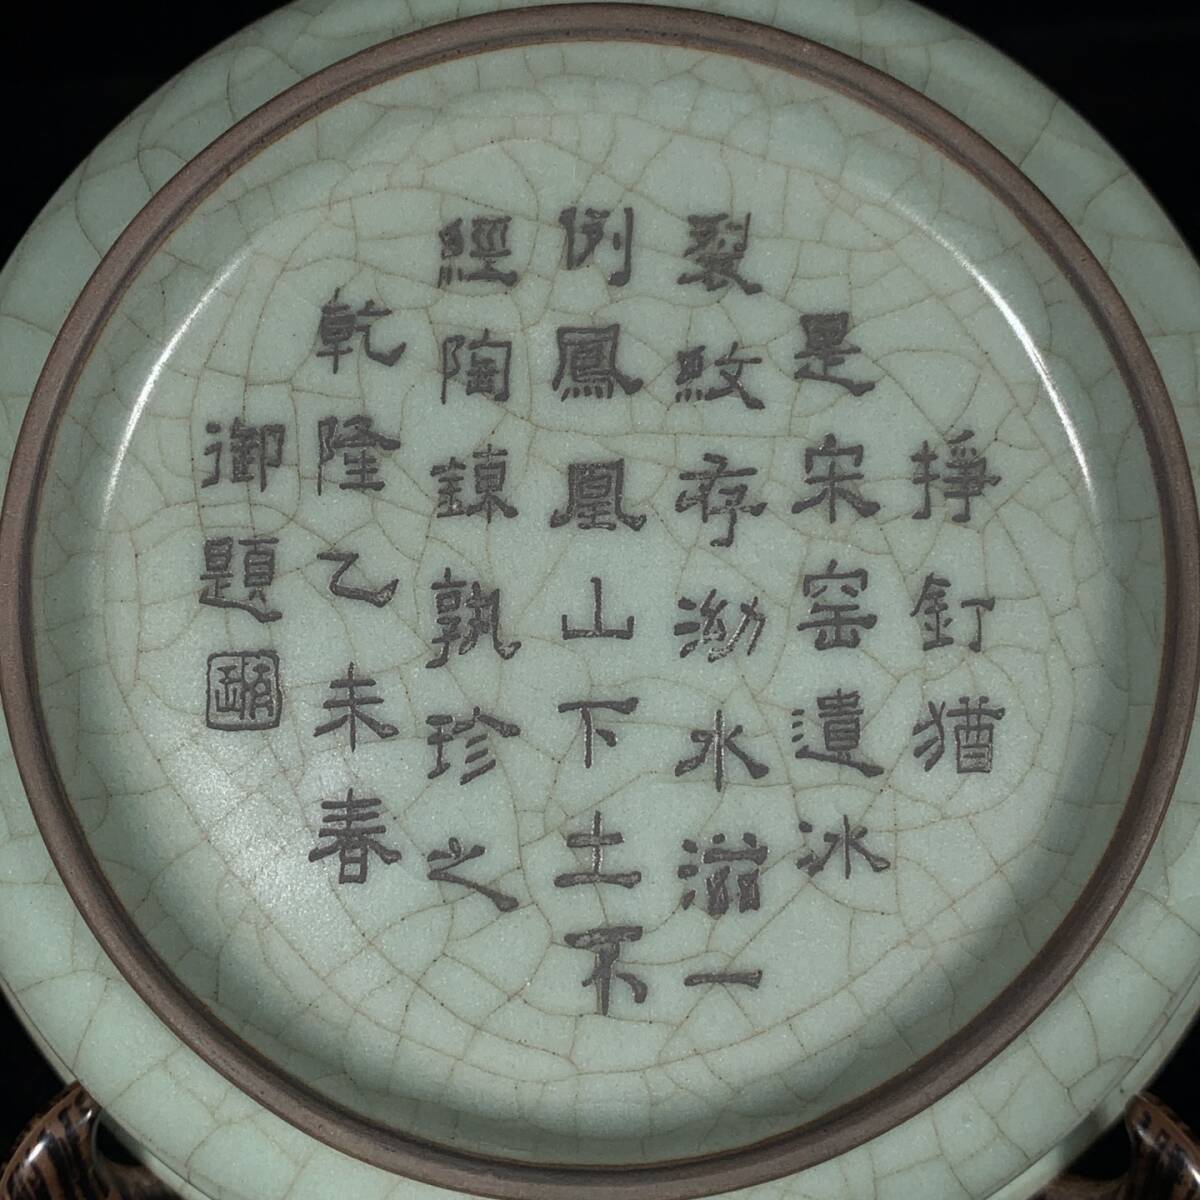 掙釘猶
是宋窑遺冰
裂紋存泑水滋一
例鳳凰山下土不
經陶鍊孰珍之
乾隆乙未春
御題